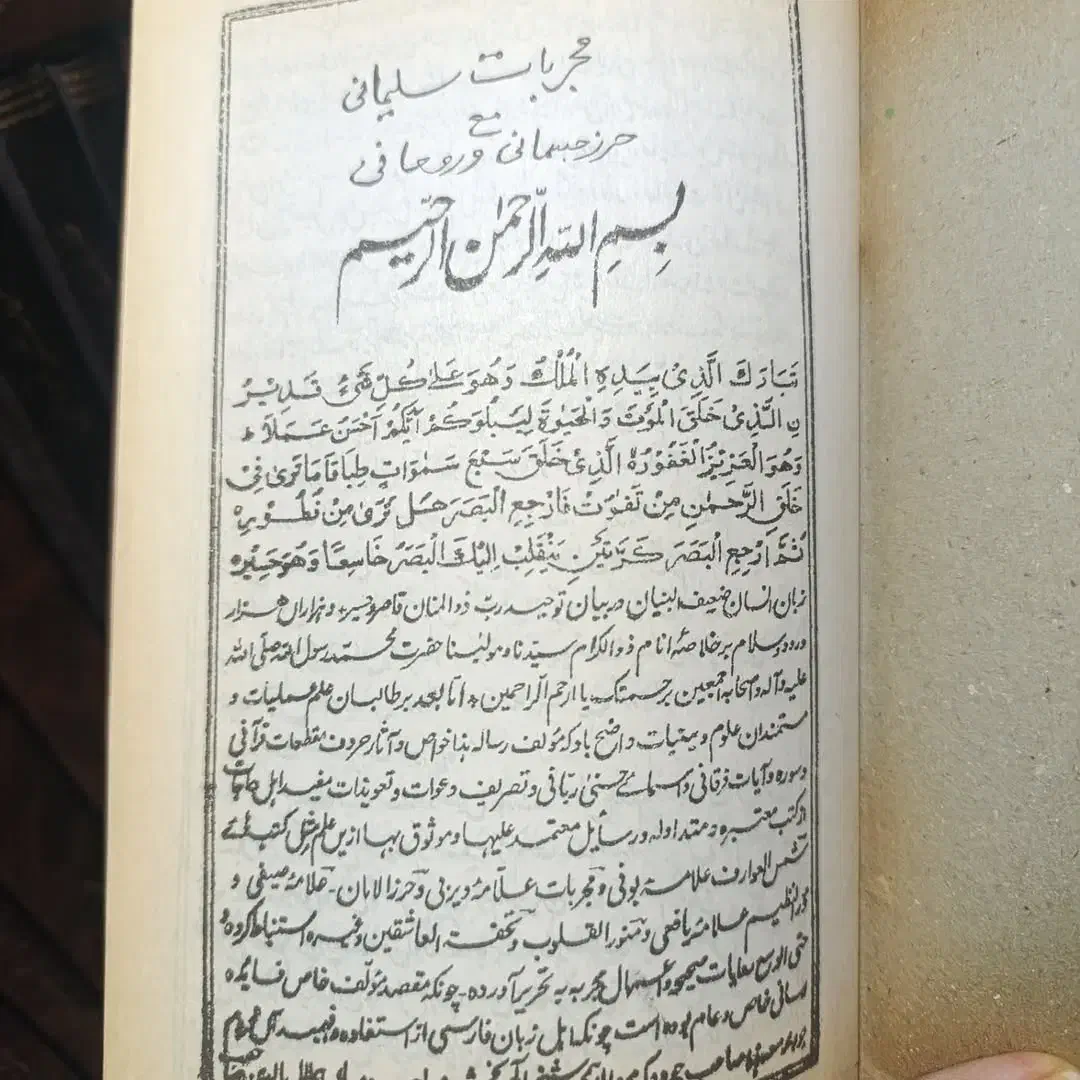 مجربات سلیمانی
مع
حرز جسمانی و روحانی
بِسْمِ اللهِ الرَّحْمٰنِ الرَّحِیْم
تَبَارَكَ الَّذِیْ بِیَدِهِ الْمُلْكُ وَهُوَ عَلٰی كُلِّ شَیْءٍ قَدِیْرُ
نِ الَّذِیْ خَلَقَ الْمَوْتَ وَالْحَیٰوةَ لِیَبْلُوَكُمْ اَیُّكُمْ اَحْسَنُ عَمَلًا ط
وَهُوَ الْعَزِیْزُ الْغَفُوْرُ ہ الَّذِیْ خَلَقَ سَبْعَ سَمٰوَاتٍ طِبَاقًا مَا تَرٰی فِیْ
خَلْقِ الرَّحْمٰنِ مِنْ تَفٰوُتٍ فَارْجِعِ الْبَصَرَ هَلْ تَرٰی مِنْ فُطُوْرٍ ہ
ثُمَّ ارْجِعِ الْبَصَرَ كَرَّتَیْنِ یَنْقَلِبْ اِلَیْكَ الْبَصَرُ خَاسِعًا وَهُوَ حَسِیْرٌ ہ
زبان انسان ضعیف البنیان در بیان توحید رب ذوالمنان قاصر و حسیر + و ہزاران ہزار
درود و سلام بر خلاصۂ انام ذوالکرام سیدنا و مولینا حضرت محمد رسول اللہ صلی اللہ
علیہ و آلہ و اصحابہ اجمعین برحمتک یا ارحم الراحمین + اما بعد بر طالبان علم عملیات و
ستمندان علوم و یمنیات واضح باد کہ مؤلف رسالہ ہذا خواص و آثار حروف مقطعات قرآنی
و سورہ و آیات فرقانی و اسمائے حسنیٰ ربانی و تصریف دعوات و تعویذات مفید اہل حاجات
از کتب معتبرہ و متداولہ و رسایل معتمد علیہا و موثوق بہا ازیں علم مثل کتب ہائے
شمس المعارف علامۂ بونی و مجربات علامۂ دیربی و حرز الامان علامۂ صیفی و
در النظیم علامۂ یافعی و منور القلوب و تحفة العاشقین وغیرہ استنباط کردہ و
حتی الوسع بغایات صحیح و اسہال مجربہ بہ تحریر آوردہ۔ چونکہ مقصد مؤلف خاص فایدہ
رسانی خاص و عام بودہ است چونکہ اہل زبان فارسی از استفادہ و فہمید آں محروم